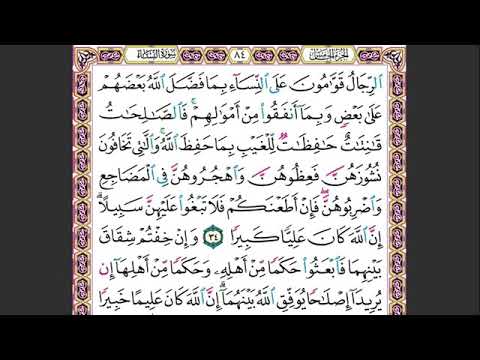 سورة النساء ٨٤ الجزء الخامس
ٱلرِّجَالُ قَوَّٰمُونَ عَلَى ٱلنِّسَآءِ بِمَا فَضَّلَ ٱللَّهُ بَعۡضَهُمۡ
عَلَىٰ بَعۡضٖ وَبِمَآ أَنفَقُواْ مِنۡ أَمۡوَٰلِهِمۡۚ فَٱلصَّٰلِحَٰتُ
قَٰنِتَٰتٌ حَٰفِظَٰتٞ لِّلۡغَيۡبِ بِمَا حَفِظَ ٱللَّهُۚ وَٱلَّٰتِي تَخَافُونَ
نُشُوزَهُنَّ فَعِظُوهُنَّ وَٱهۡجُرُوهُنَّ فِي ٱلۡمَضَاجِعِ
وَٱضۡرِبُوهُنَّۖ فَإِنۡ أَطَعۡنَكُمۡ فَلَا تَبۡغُواْ عَلَيۡهِنَّ سَبِيلًاۗ
إِنَّ ٱللَّهَ كَانَ عَلِيّٗا كَبِيرٗا ٣٤ وَإِنۡ خِفۡتُمۡ شِقَاقَ
بَيۡنِهِمَا فَٱبۡعَثُواْ حَكَمٗا مِّنۡ أَهۡلِهِۦ وَحَكَمٗا مِّنۡ أَهۡلِهَآ إِن
يُرِيدَآ إِصۡلَٰحٗا يُوَفِّقِ ٱللَّهُ بَيۡنَهُمَآۗ إِنَّ ٱللَّهَ كَانَ عَلِيمًا خَبِيرٗا